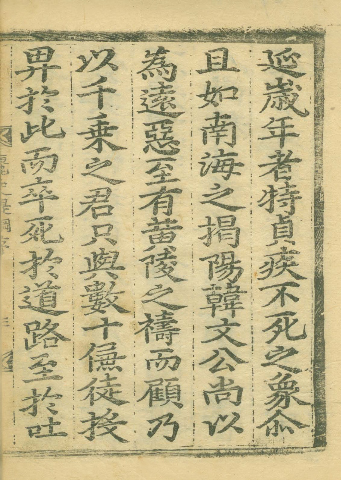 延歲年者特貞疾不死之象尒
且如南海之揭陽韓文公尚以
為遠惡至有黃陵之禱而顧乃
以千乘之君只與數十僕徒投
畀於此而卒死於道路至於吐